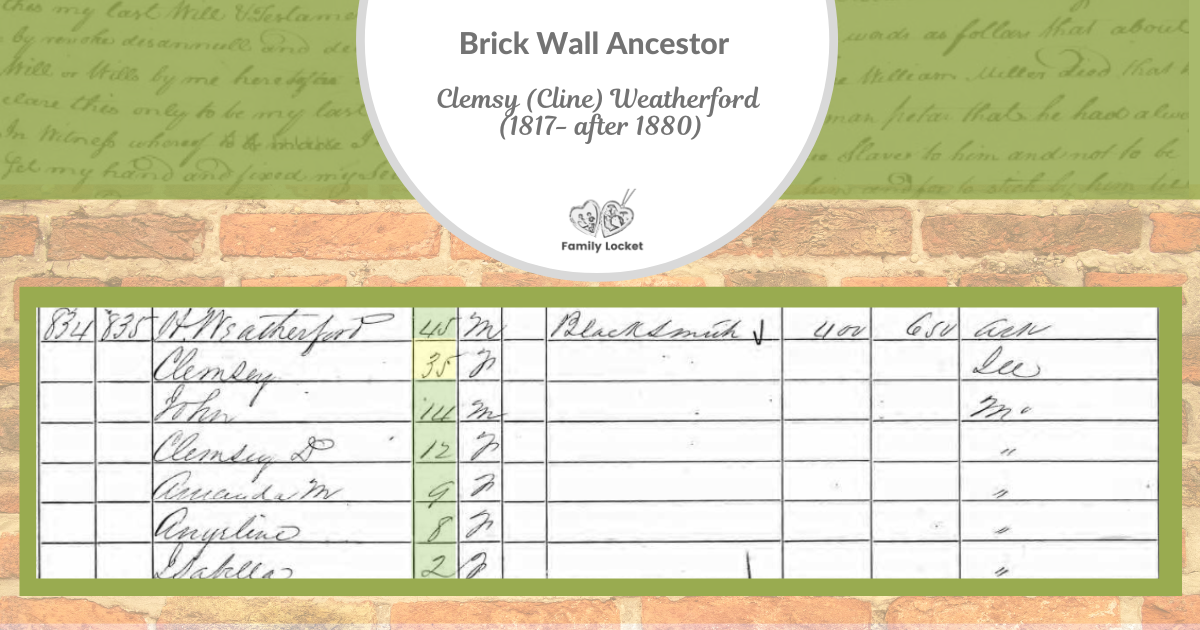 this my last Will & Testame
by revoke disannull and de
Will or Wills by me heretofore
clare this only to be my last
In Witness whereof
Set my hand and fixed my
words as follars that about
William Miller died that
man petar that he had alwa
Slaves to him and not to be
him and for to stick by him
Brick Wall Ancestor
Clemsy (Cline) Weatherford
(1817- after 1880)
Family Locket
834 835 H. Weatherford 45 M Blacksmith 400 650
Clemsey 35 F
John 14 M Mo
Clemsey D 12 F "
Amanda M 9 F "
Angeline 8 F "
Isabella 2 F "